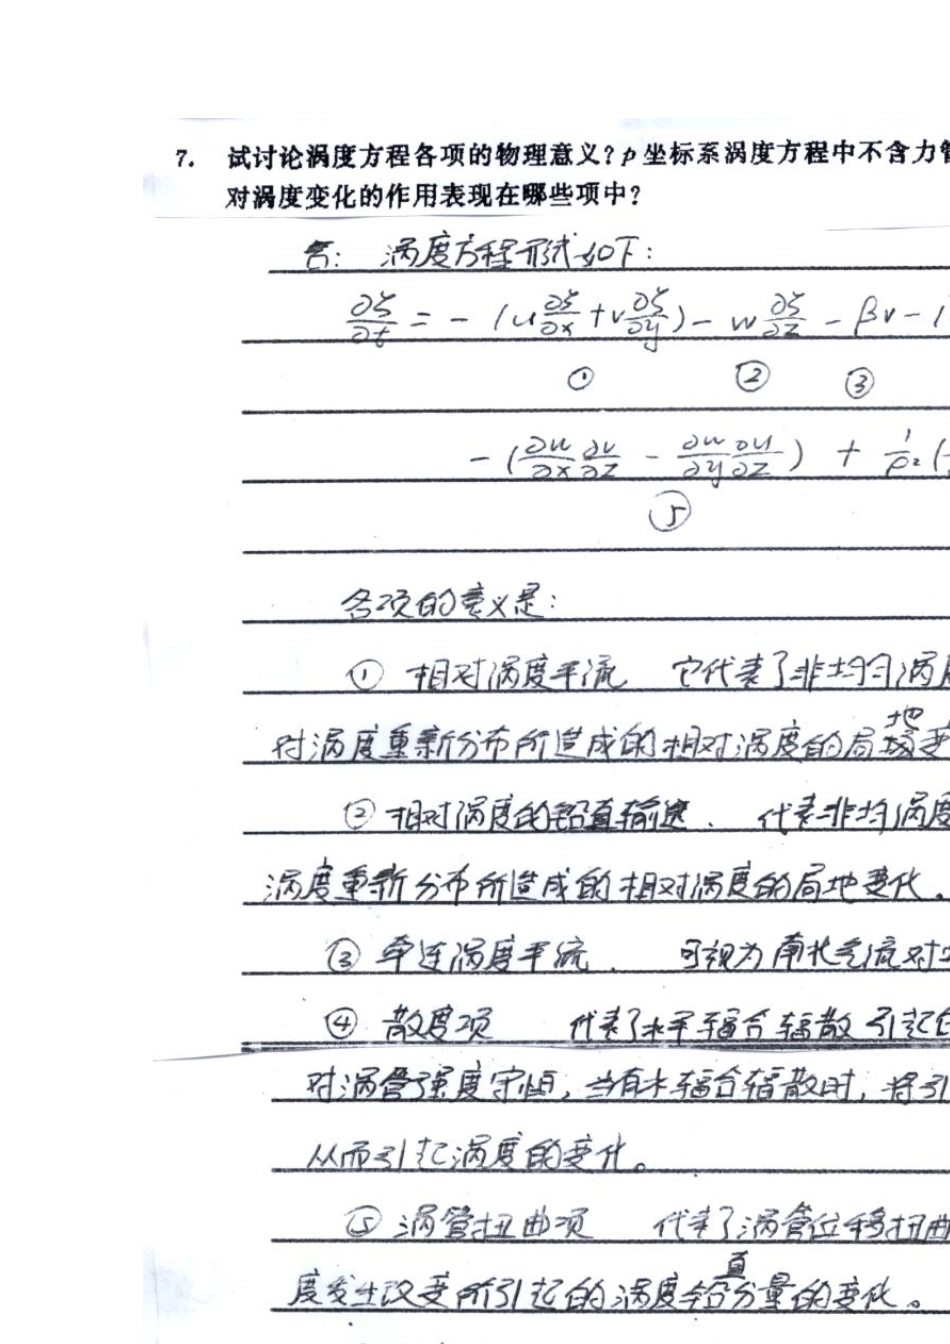 7. 试讨论涡度方程各项的物理意义?p坐标系涡度方程中不含力管
对涡度变化的作用表现在哪些项中?
答: 涡度方程形式如下:
∂ζ/∂t = - (u ∂ζ/∂x + v ∂ζ/∂y) - w ∂ζ/∂z - βv - (
① ② ③
- (∂w/∂x ∂v/∂z - ∂w/∂y ∂u/∂z) + 1/ρ² (
⑤
各项的意义是:
① 相对涡度平流 它代表了非均匀涡度
对涡度重新分布所造成的相对涡度的局地变
② 相对涡度的铅直输送. 代表非均涡度
涡度重新分布所造成的相对涡度的局地变化.
③ 牵连涡度平流. 可视为南北气流对
④ 散度项 代表了水平辐合辐散引起的
对涡管强度守恒,当有水辐合辐散时,将引
从而引起涡度的变化。
⑤ 涡管扭曲项 代表了涡管位移扭曲
度发生改变所引起的涡度铅直分量的变化。